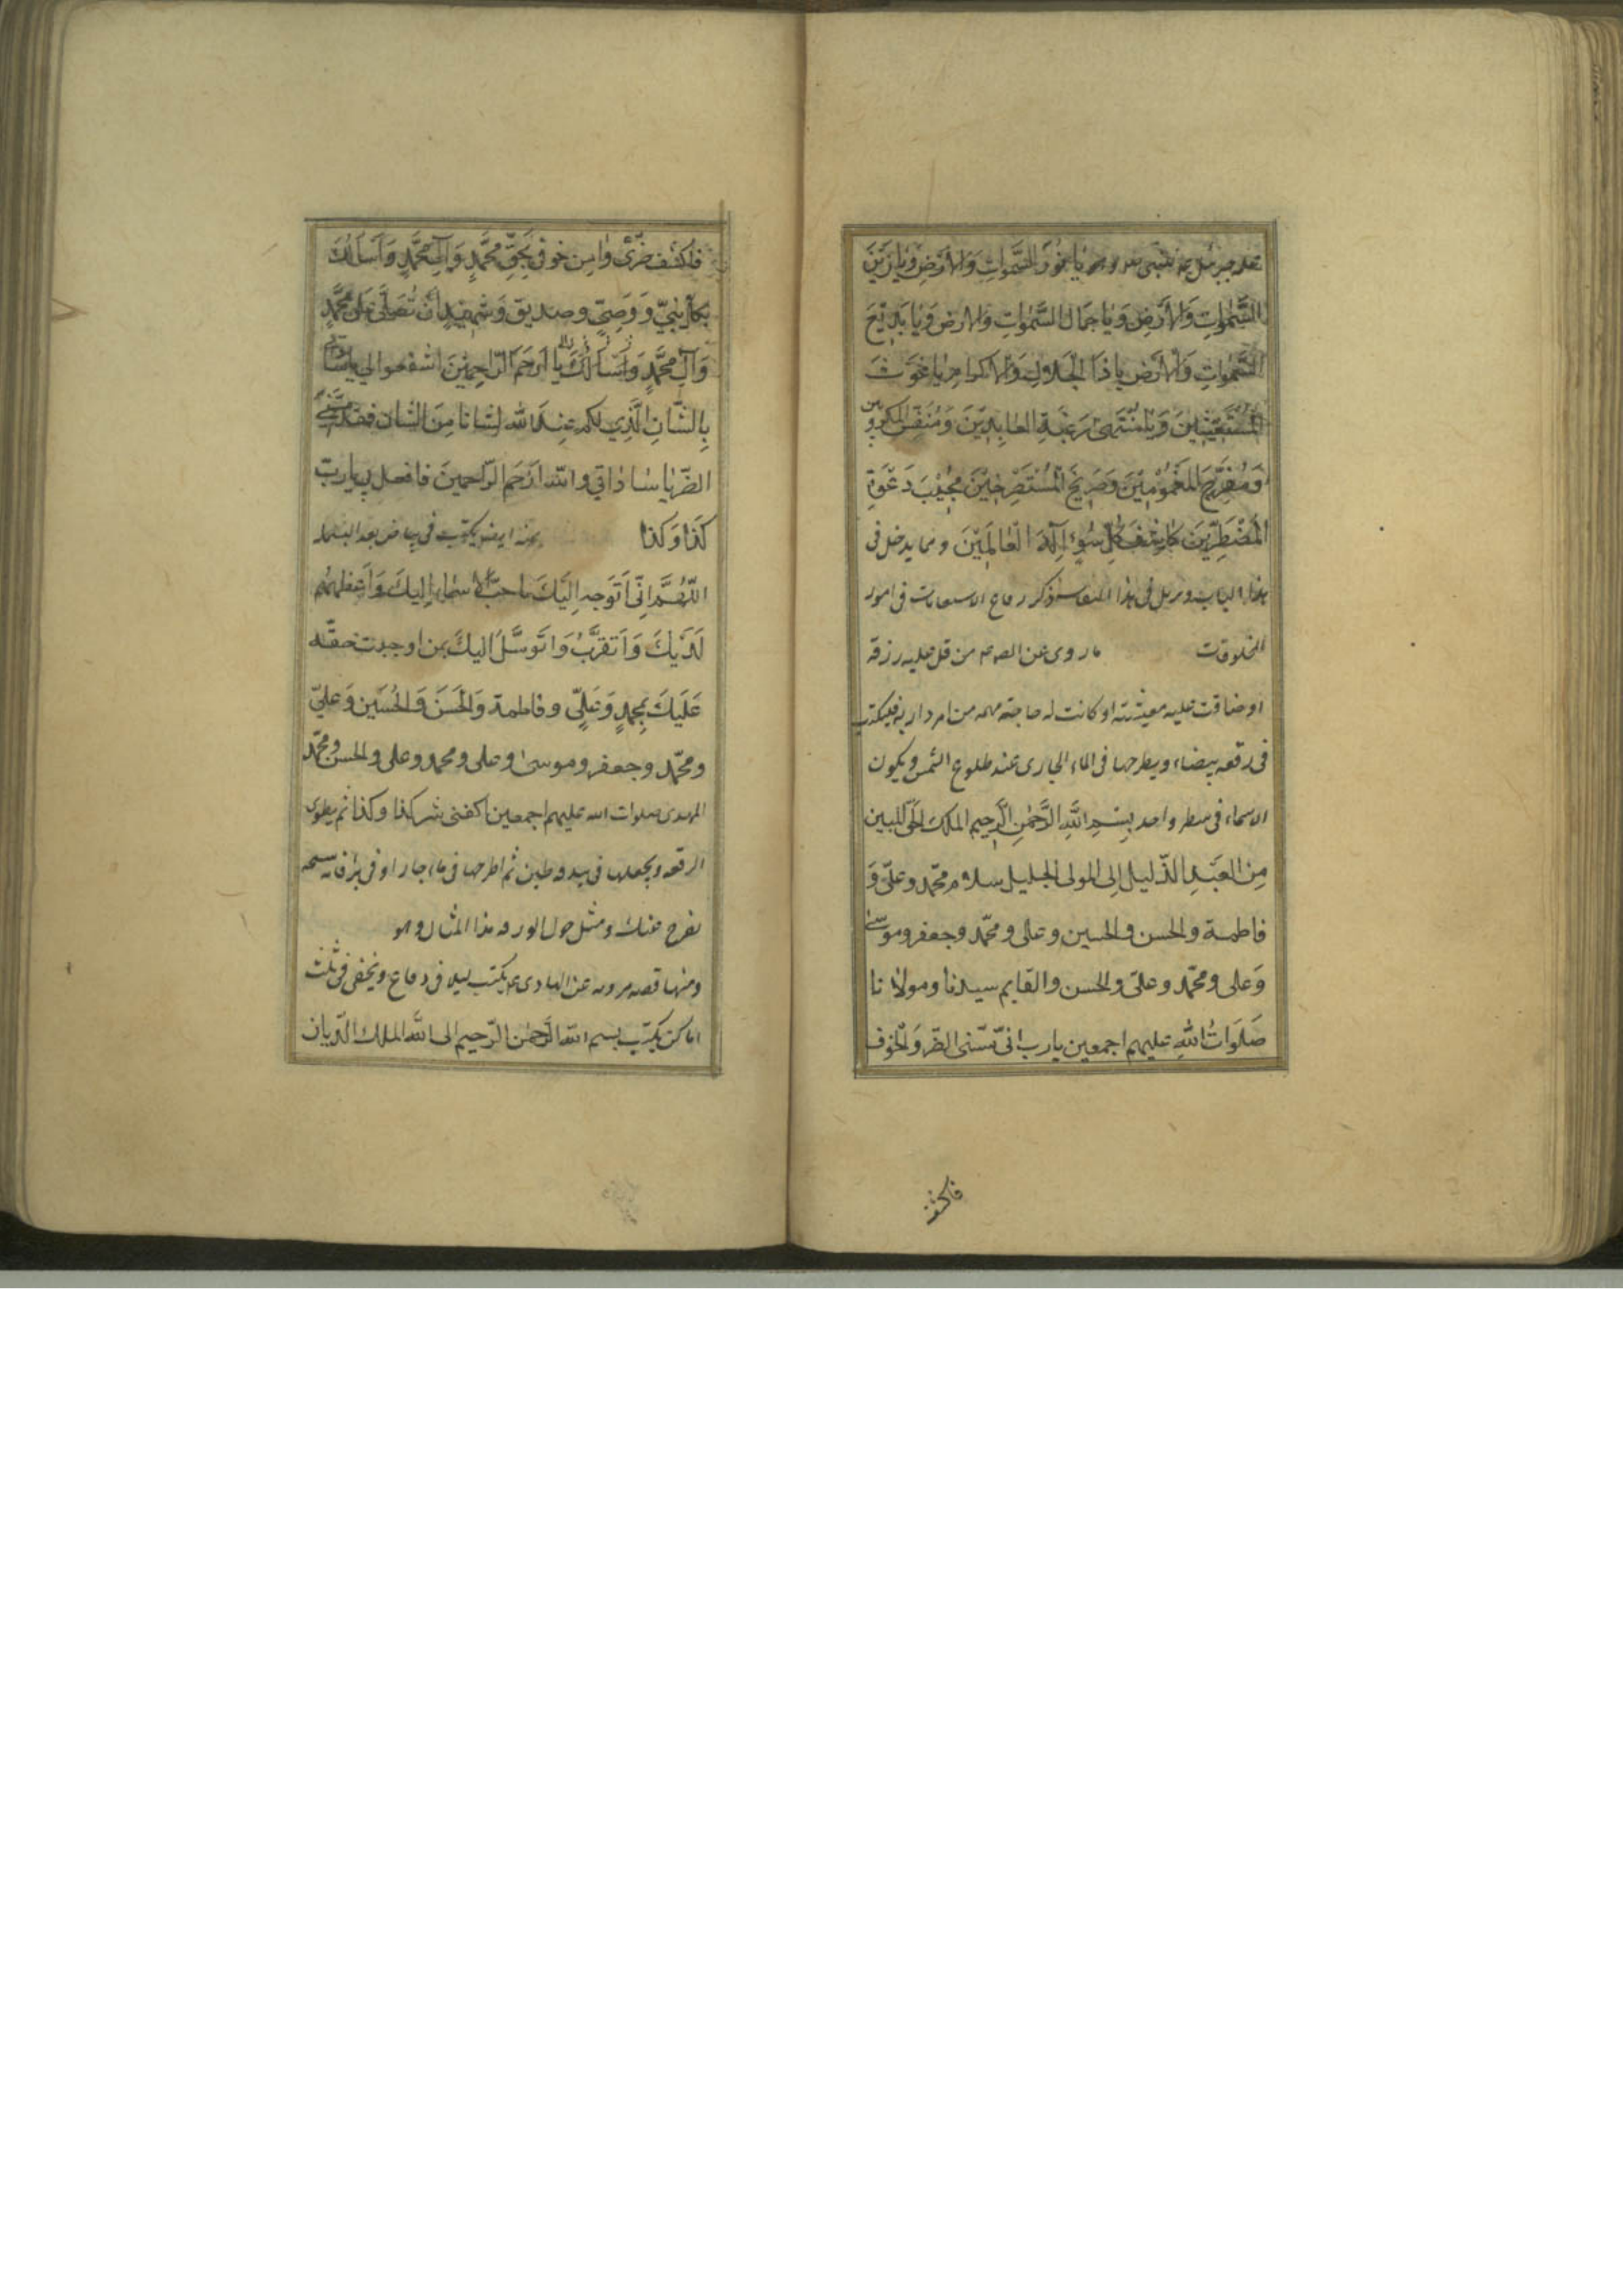 يا نور السَّمٰواتِ وَالاَرْضِ وَيا زَيْنَ
السَّمٰواتِ وَالاَرْضِ وَيا جَمَالَ السَّمٰواتِ وَالارض وَيا بَدِيْعَ
السَّمٰواتِ وَالاَرْضِ يا ذَا الجَلالِ وَالاكرام يا غَوْثَ
المُسْتَغيثينَ وَيا مُنْتَهى رَغْبَةِ العابِدِيْنَ وَمُنَفِّسَ المكروبين
وَمُفَرِّجَ المَغْمُومِيْنَ وَصَرِيْخَ المُسْتَصْرِخِيْنَ مُجِيْبَ دَعْوَةِ
المُضْطَرِّيْنَ كاشِفَ كُلِّ سُوْءٍ اِلٰهَ العٰالَمِيْنَ ومما يدخل فى
هذا الباب فى هذا ذكر رقاع الاستغاثات فى امور
المخلوقات ما روى عن الص ع م من قل عليه رزقه
او ضاقت عليه معيشته او كانت له حاجة مهمه من امر داريه فليكتب
فى رقعه بيضاء ويطرحها فى الماء الجارى عند طلوع الشمس ويكون
الاسماء فى سطر واحد بِسْمِ اللهِ الرَّحْمٰنِ الرَّحِيمِ الملك الحَقّ المبين
مِنَ العَبْدِ الذّليل اِلى المولى الجليل سلام محمّد وعليّ وَ
فاطمة والحسن والحسين وعلى ومحمّد وجعفر وموسىٰ
وَعلى ومحمّد وعلىّ والحسن والقايم سيدنا ومولانا
صَلَوَاتُ اللهِ عليهم اجمعين يا رب انى مسّنى الضّر وَالخوف
فاكشف
فاكشف ضُرّى وٰامِن خوفى بِحَقِّ مُحَمَّدٍ وَاٰلِ مُحَمَّدٍ وَاَسأَلُكَ
بكلّ نَبِيٍّ وَوَصِيٍّ وصديق وَشهيد اَنْ تُصَلِّيَ عَلى مُحَمَّدٍ
وَآلِ مُحَمَّدٍ يا اَرْحَمَ الرّاحِمِيْنَ اشفعوا لى يا ساداتي
بِالشّانِ الَّذِي لكم عِنْدَ الله لشانا مِنَ الشان فقد مسّنى
الضّر يا ساداتي والله اَرْحَم الرّاحمينَ فافعل بى يا ربّ
كَذا وَكذا منه ايضا يكتب فى بياض بعد البسمله
اللّٰهُمَّ اِنِّى اَتَوَجه اِلَيْكَ باحَبّ الاسماء اِلَيكَ وَاَعْظمهم
لَدَيْكَ وَاَتَقَرَّبُ وَاَتَوَسَّلُ اليكَ بمن اوجبت حقّه
عَلَيْكَ بِمحمدٍ وَعَليٍّ وفاطمة وَالحَسَن وَالحُسَين وَعليّ
ومحمّد وجعفر وموسىٰ وعلى ومحمد وعلى والحسن ومحمّد
المهدى صلوات الله عليهم اجمعين اكفنى شر كذا وكذا ثم يطوى
الرقعه ويجعلها فى بندقه طين ثم اطرحها فى ماء جار او فى بئر فانه سبحانه
يفرج عنك ومثل حول الورقه هذا المثال وهو
ومنها قصه مرويه عن الهادى ع م يكتب ليلا فى رقاع ويخفى فى ثلث
اماكن يكتب بسم الله الرّحمٰن الرّحيم الى الله الملك الدّيان